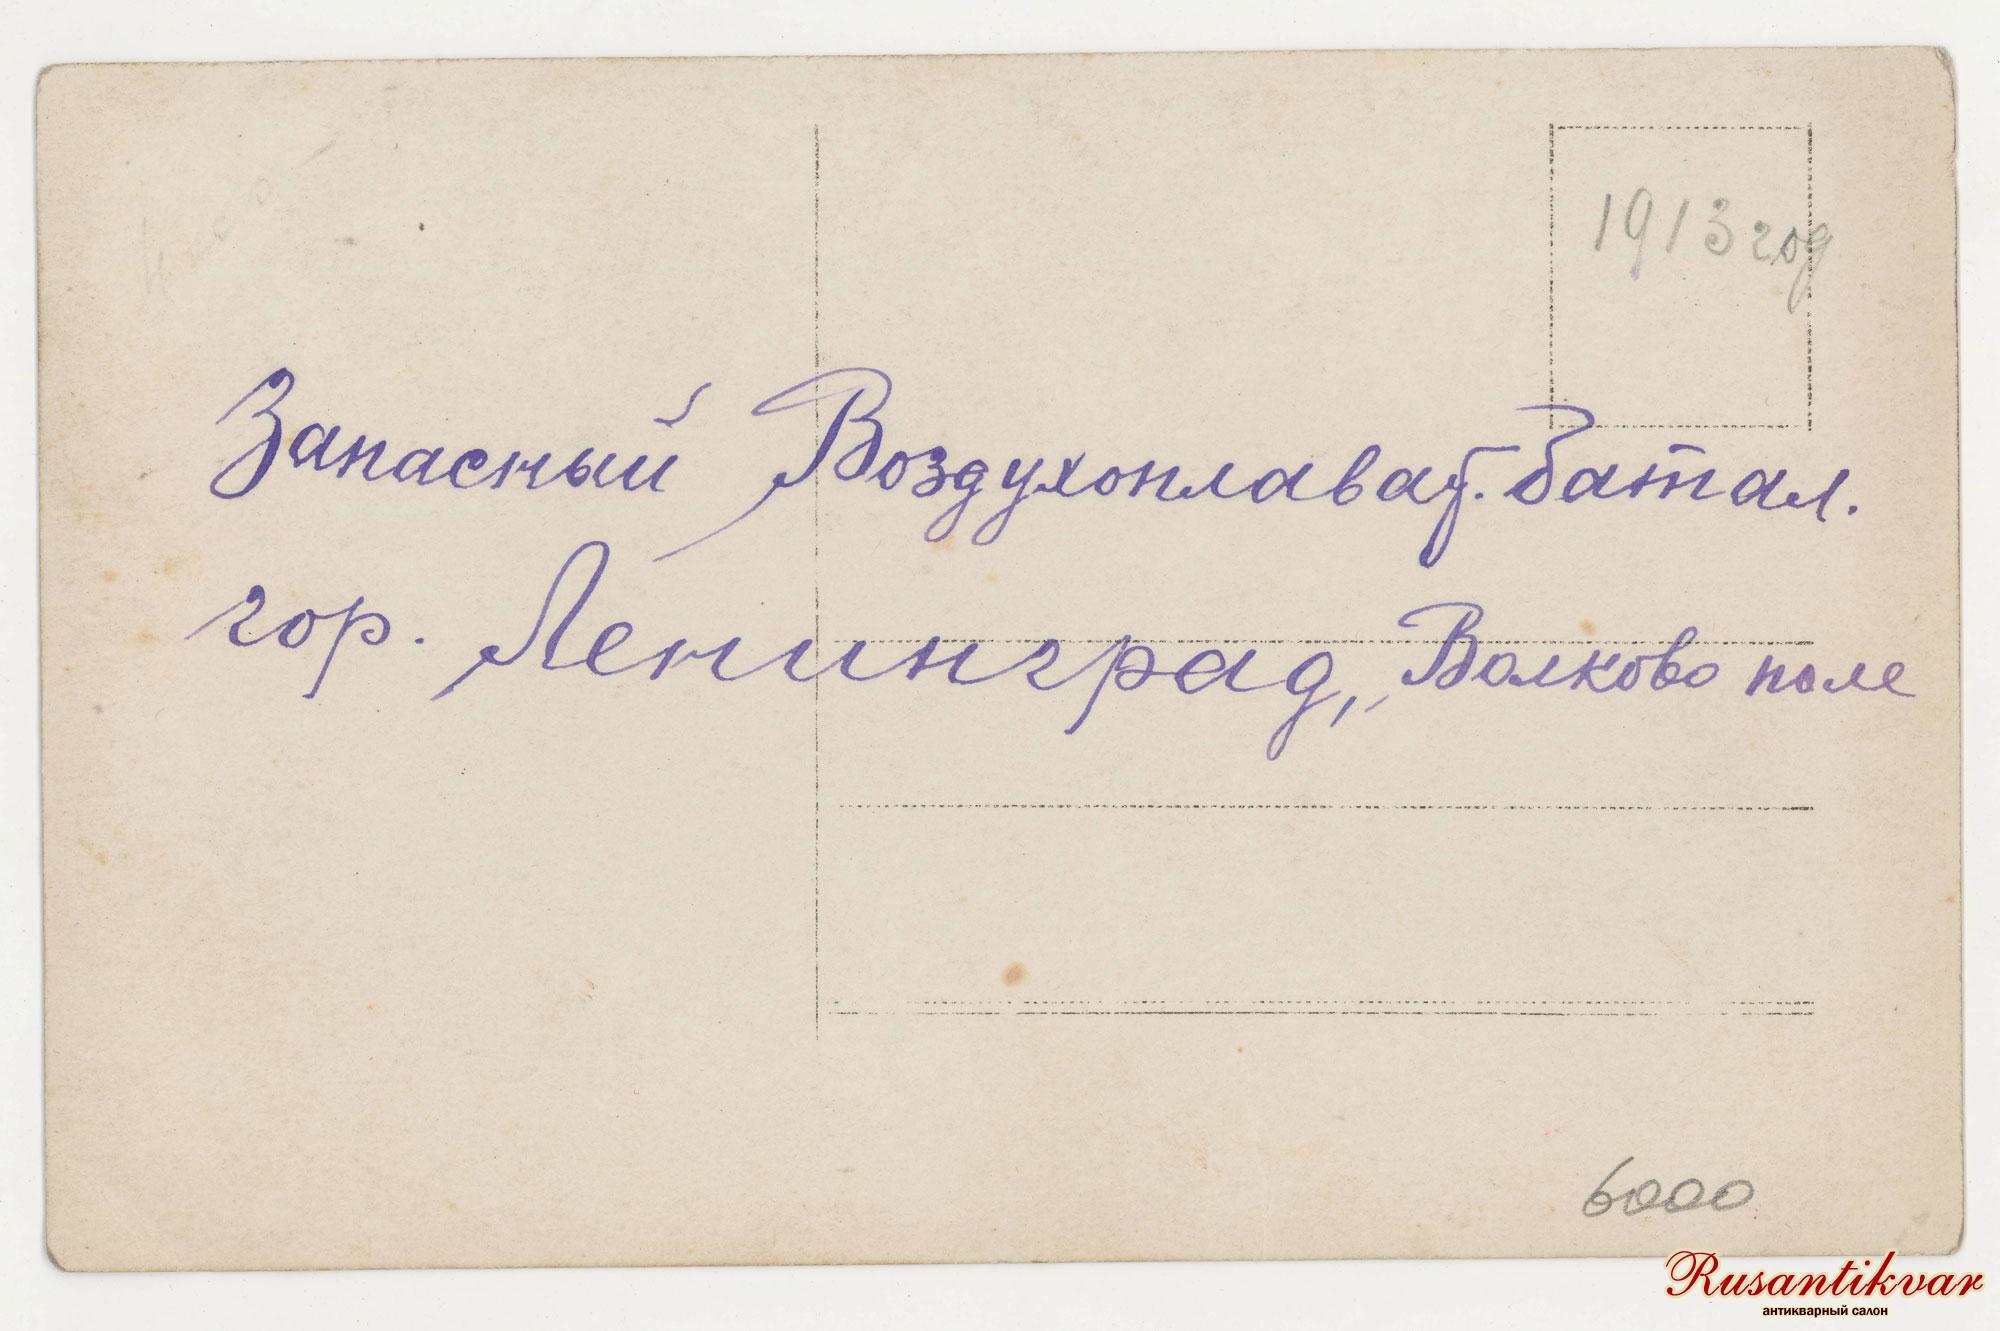 1913 год
Запасный Воздухоплават. Батал.
гор. Ленинград, Волково поле
6000
Rusantikvar
антикварный салон